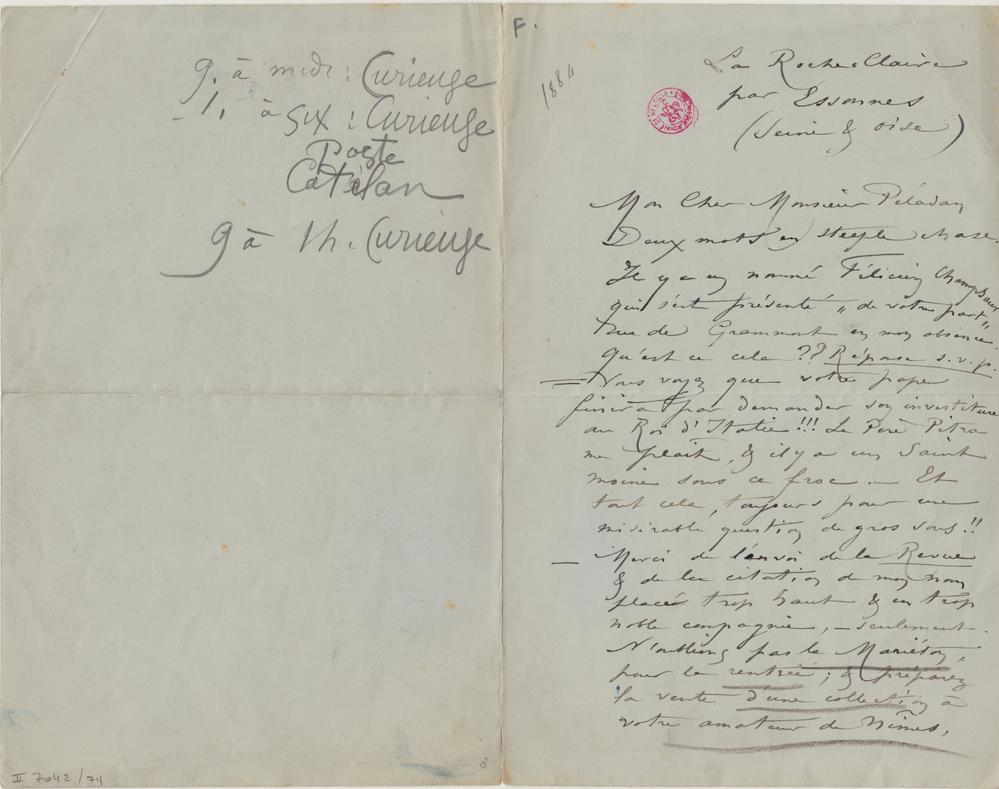 9. à midi : Curienge
1, à six : Curienge
Poste
Catélan
9 à 1h. Curienge
II 7042/74
F.
1884
La Roche-Claire
par Essonnes
(Seine & Oise)
Mon Cher Monsieur Péladan
Deux mots en steeple chase.
Il y a un nommé Félicien Champsaur
qui s'est présenté „ de votre part „
rue de Grammont en mon absence.
Qu'est ce cela ?? Réponse s.v.p.
= Vous voyez que votre pape
finira par demander son investiture
au Roi d'Italie !!! Le Père Pitra
me plait, & il y a un Saint
moine sous ce froc. — Et
tout cela, toujours pour une
misérable question de gros sous !!
— Merci de l'envoi de la Revue
& de la citation de mon nom
placé trop haut & en trop
noble compagnie, — seulement.
N'oublions pas le Mariéton,
pour la rentrée ; & préparez
la vente d'une collection à
votre amateur de Nîmes,